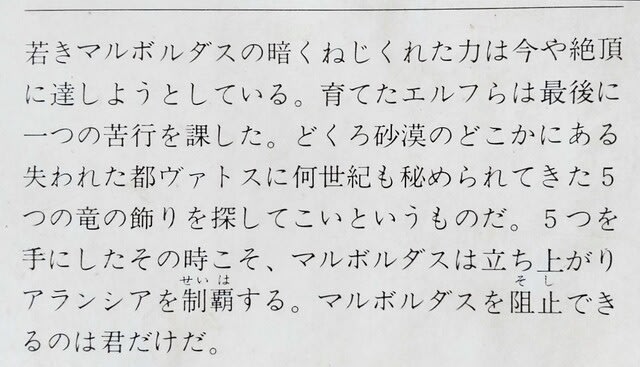 若きマルボルダスの暗くねじくれた力は今や絶頂
に達しようとしている。育てたエルフらは最後に
一つの苦行を課した。どくろ砂漠のどこかにある
失われた都ヴァトスに何世紀も秘められてきた5
つの竜の飾りを探してこいというものだ。5つを
手にしたその時こそ、マルボルダスは立ち上がり
せいは そし
アランシアを制覇する。マルボルダスを阻止でき
るのは君だけだ。